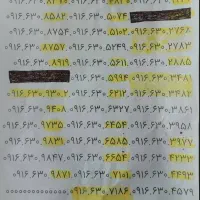 ۰۹۱۶,۶۳۰,۸۵۸۲ ۰۹۱۶,۶۳۰,۵۰۷۴
۰۹۱۶,۶۳۰,۸۷۵۴ ۰۹۱۶,۶۳۰,۵۱۰۲ ۰۹۱۶,۶۳۰,۲۷۶۸
۰۹۱۶,۶۳۰,۸۷۵۷ ۰۹۱۶,۶۳۰,۵۲۴۹ ۰۹۱۶,۶۳۰,۲۷۸۳
۰۹۱۶,۶۳۰,۸۹۱۹ ۰۹۱۶,۶۳۰,۵۶۱۱ ۰۹۱۶,۶۳۰,۲۸۸۵
۰۹۱۶,۶۳۰,۵۹۹۴ ۰۹۱۶,۶۳۰,۳۴۷۱
۰۹۱۶,۶۳۰,۹۳۰۲ ۰۹۱۶,۶۳۰,۳۴۸۱
۰۹۱۶,۶۳۰,۹۴۰۸ ۰۹۱۶,۶۳۰,۶۳۲۷ ۰۹۱۶,۶۳۰,۳۸۶۱
۰۹۱۶,۶۳۰,۹۷۳۵ ۰۹۱۶,۶۳۰,۶۴۵۴ ۰۹۱۶,۶۳۰,۳۹۵۸
۰۹۱۶,۶۳۰,۹۸۳۱ ۰۹۱۶,۶۳۰,۶۵۸۵ ۰۹۱۶,۶۳۰,۳۹۷۷
۰۹۱۶,۶۳۰,۹۸۴۷ ۰۹۱۶,۶۳۰,۶۶۵۴ ۰۹۱۶,۶۳۰,۴۲۳۲
۰۹۱۶,۶۳۰,۹۸۷۱ ۰۹۱۶,۶۳۰,۷۱۵۱ ۰۹۱۶,۶۳۰,۴۴۹۳
۰۹۱۶,۶۳۰,۷۱۸۶ ۰۹۱۶,۶۳۰,۴۵۷۹